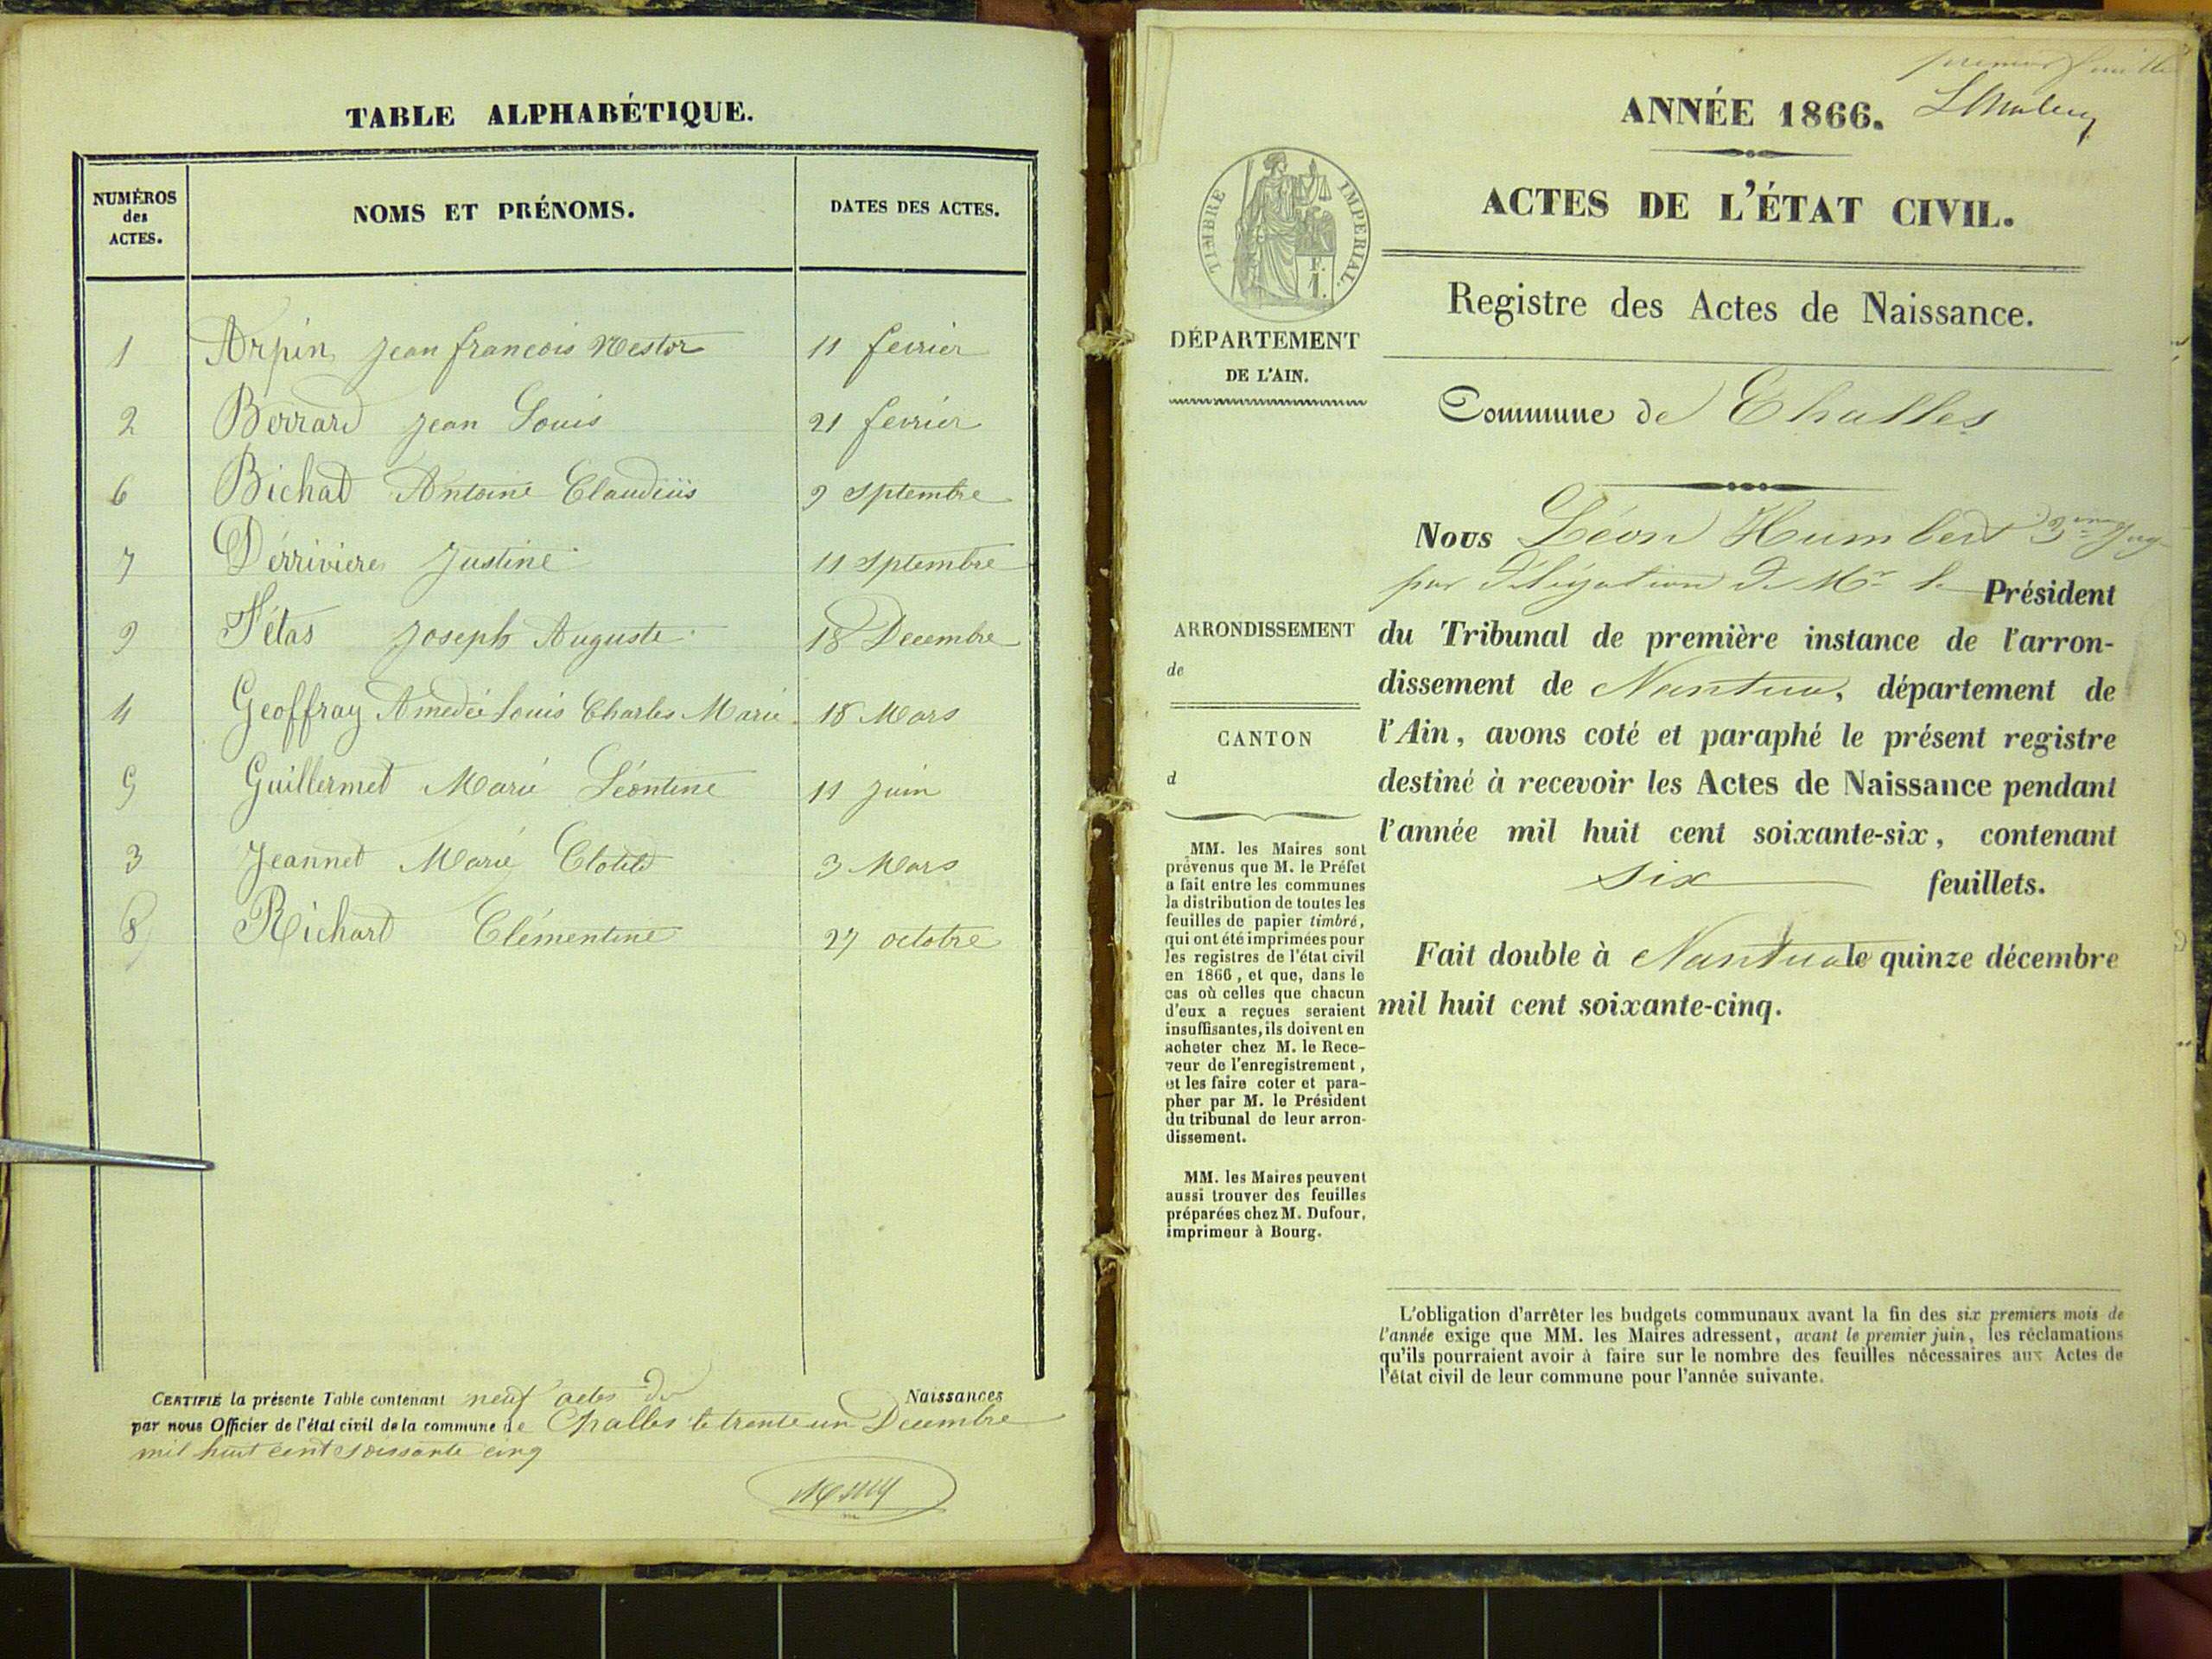 TABLE ALPHABÉTIQUE.
NUMÉROS des ACTES.
NOMS ET PRÉNOMS.
DATES DES ACTES.
1 Arpin Jean françois Nestor 11 fevrier
2 Berrard Jean Louis 21 fevrier
6 Bichat Antoine Claudius 9 Septembre
7 Dérriviere Justine 11 Septembre
9 Fétas Joseph Auguste 18 Decembre
4 Geoffray Amedée Louis Charles Marie 18 Mars
5 Guillermet Marie Léontine 11 Juin
3 Jeannet Marie Clotild 3 Mars
8 Richard Clémentine 27 octobre
CERTIFIÉ la présente Table contenant neuf actes de Naissances
par nous Officier de l'état civil de la commune de Challes le trente un Decembre
mil huit cent soissante cinq
premier feuillet
ANNÉE 1866.
ACTES DE L'ÉTAT CIVIL.
TIMBRE IMPERIAL.
Registre des Actes de Naissance.
DÉPARTEMENT
DE L'AIN.
Commune de Challes
Nous Léon Humbert 3me Juge
par délégation de Mr le Président
du Tribunal de première instance de l'arron-
dissement de Nantua, département de
l'Ain, avons coté et paraphé le présent registre
destiné à recevoir les Actes de Naissance pendant
l'année mil huit cent soixante-six, contenant
six feuillets.
Fait double à Nantua le quinze décembre
mil huit cent soixante-cinq.
ARRONDISSEMENT
de
CANTON
d
MM. les Maires sont
prévenus que M. le Préfet
a fait entre les communes
la distribution de toutes les
feuilles de papier timbré,
qui ont été imprimées pour
les registres de l'état civil
en 1866, et que, dans le
cas où celles que chacun
d'eux a reçues seraient
insuffisantes, ils doivent en
acheter chez M. le Rece-
veur de l'enregistrement,
et les faire coter et para-
pher par M. le Président
du tribunal de leur arron-
dissement.
MM. les Maires peuvent
aussi trouver des feuilles
préparées chez M. Dufour,
imprimeur à Bourg.
L'obligation d'arrêter les budgets communaux avant la fin des six premiers mois de
l'année exige que MM. les Maires adressent, avant le premier juin, les réclamations
qu'ils pourraient avoir à faire sur le nombre des feuilles nécessaires aux Actes de
l'état civil de leur commune pour l'année suivante.